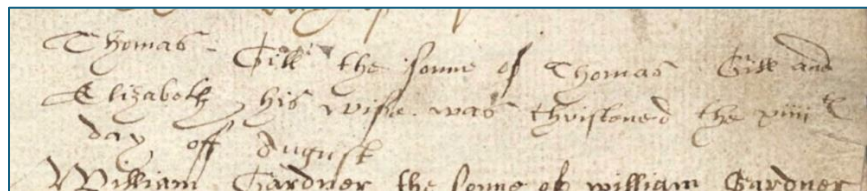 Thomas Gill the sonne of Thomas Gill and
Elizabeth his wife was christoned the xiiiith
day off August
William Gardner the sonne of william Gardner